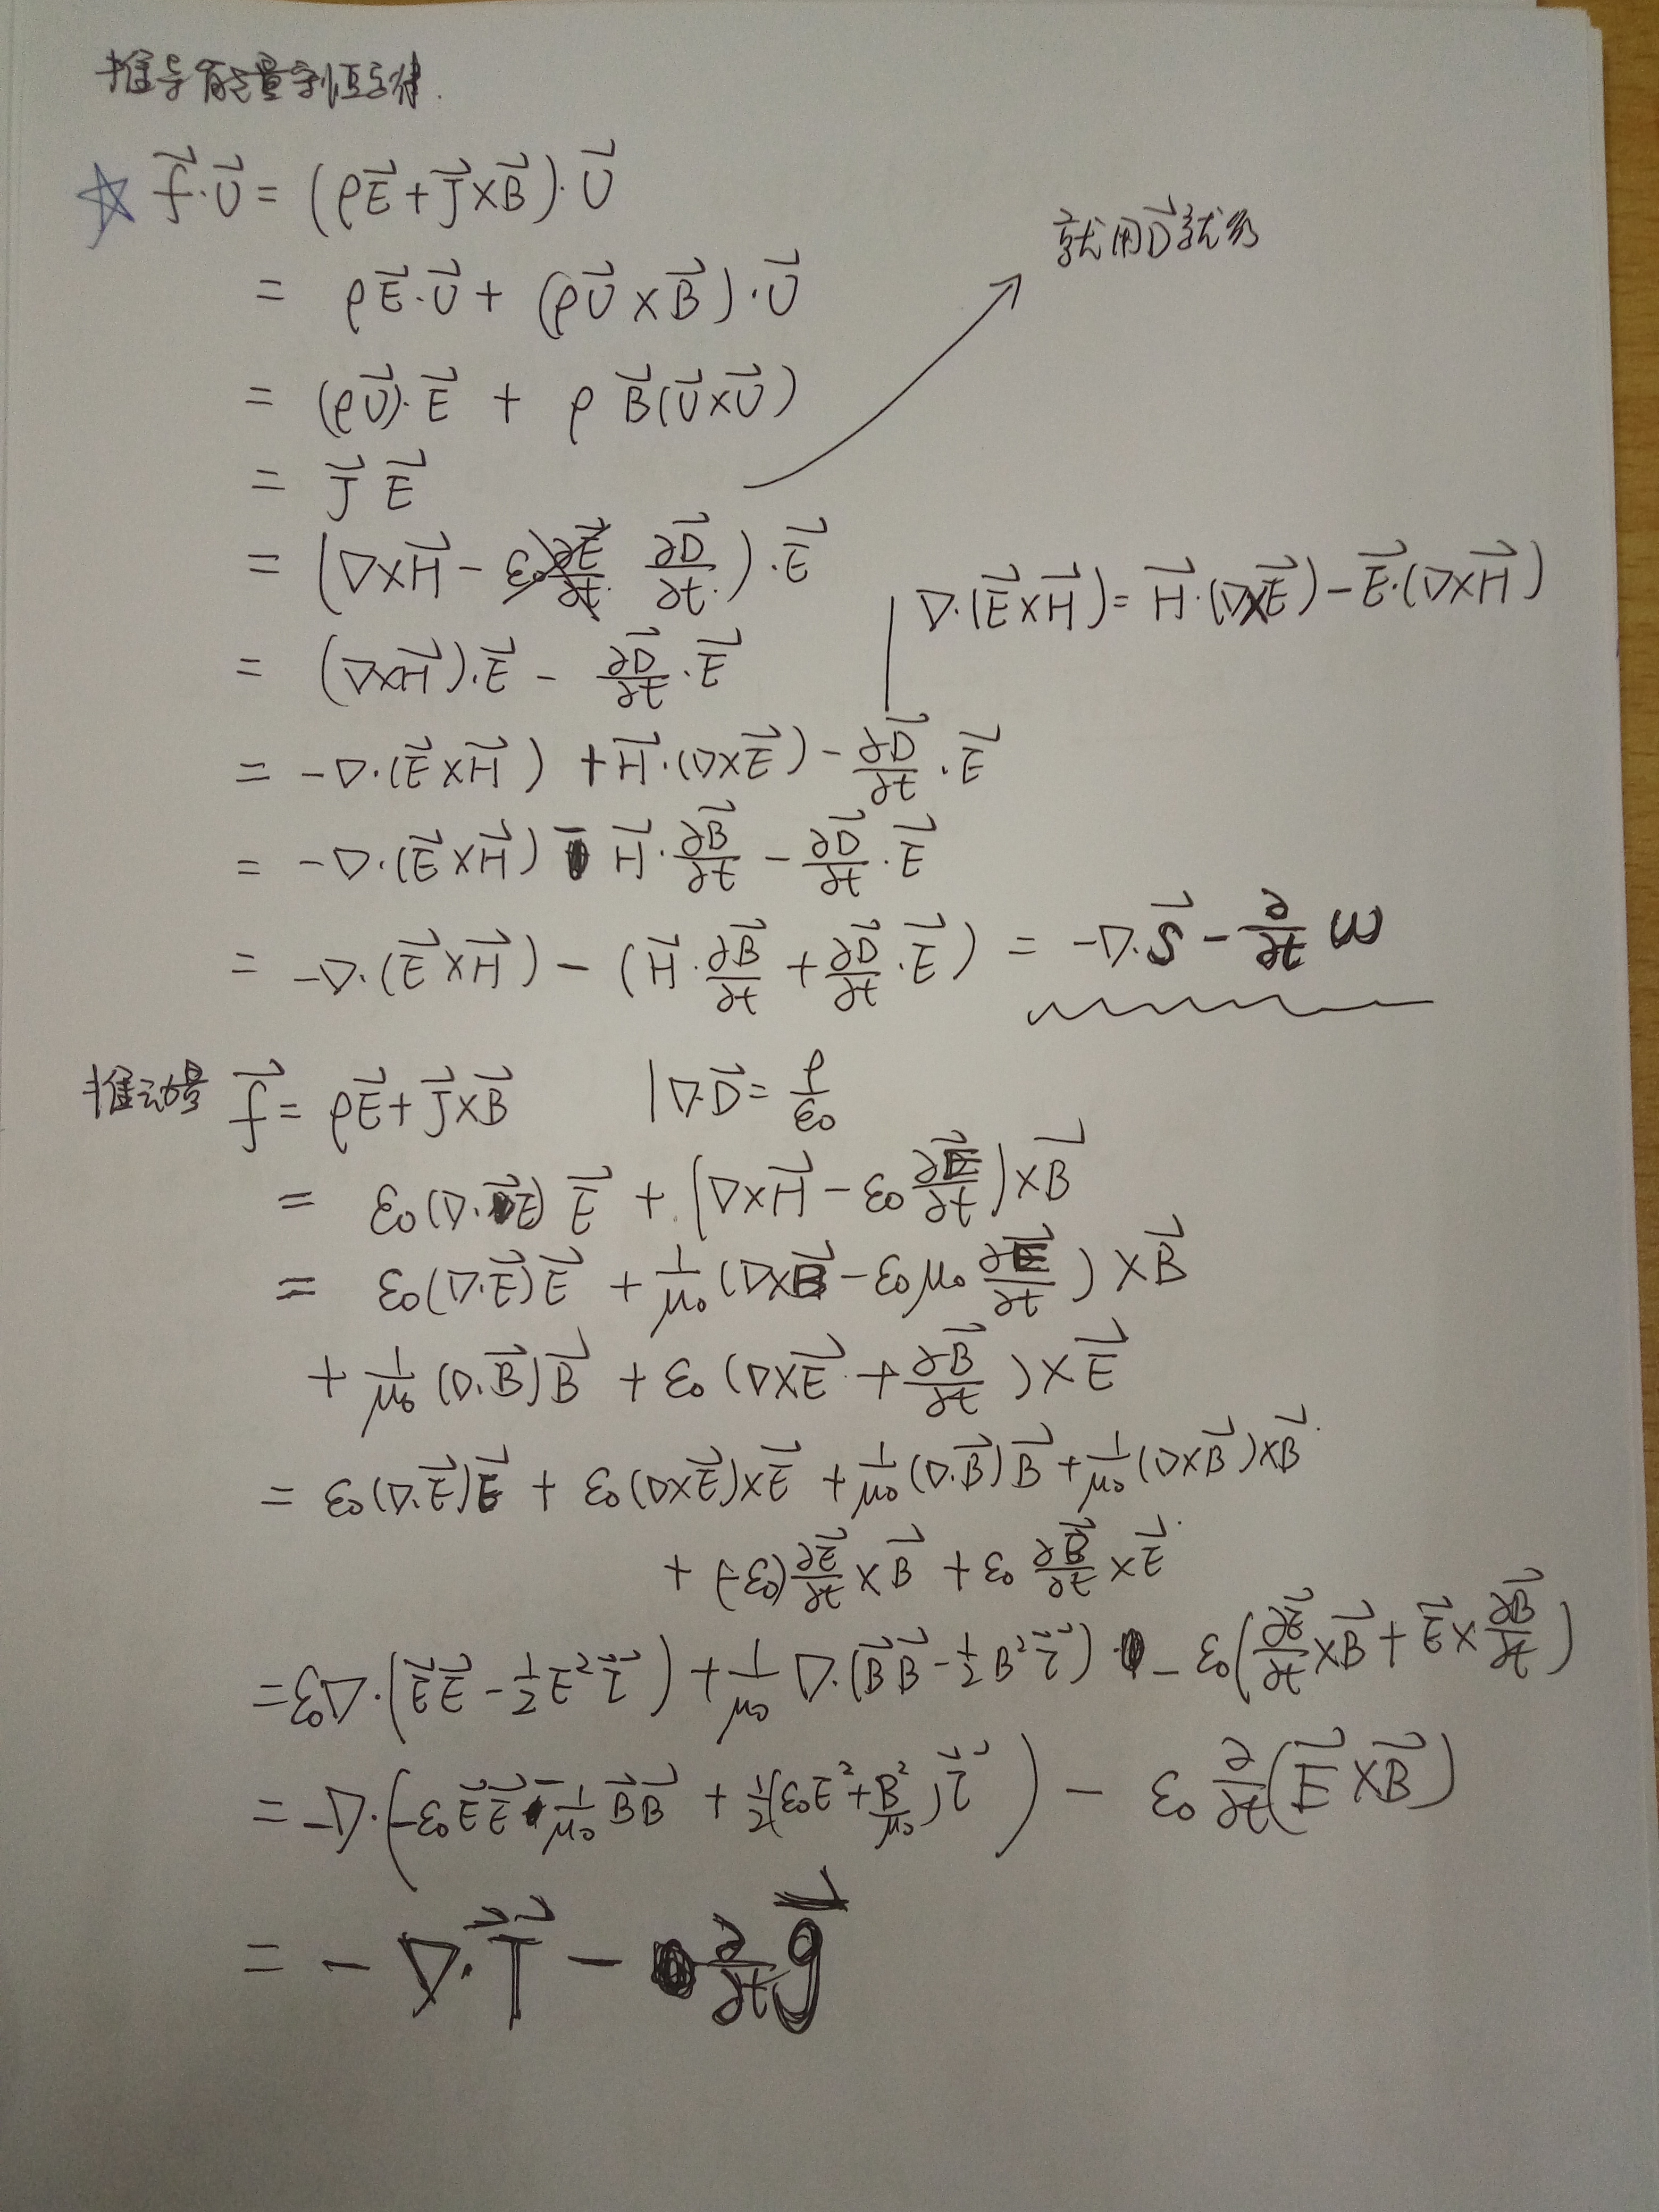 推导能量守恒定律.
☆ $\vec{f}\cdot\vec{U} = (\rho\vec{E}+\vec{J}\times\vec{B})\cdot\vec{U}$
$= \rho\vec{E}\cdot\vec{U} + (\rho\vec{U}\times\vec{B})\cdot\vec{U}$
$= (\rho\vec{U})\cdot\vec{E} + \rho\vec{B}(\vec{U}\times\vec{U})$
$= \vec{J}\ \vec{E}$
就用$\vec{D}$就行
$= (\nabla\times\vec{H} - \frac{\partial\vec{D}}{\partial t.})\cdot\vec{E}$
$\nabla\cdot(\vec{E}\times\vec{H}) = \vec{H}\cdot(\nabla\times\vec{E}) - \vec{E}\cdot(\nabla\times\vec{H})$
$= (\nabla\times\vec{H})\cdot\vec{E} - \frac{\partial\vec{D}}{\partial t}\cdot\vec{E}$
$= -\nabla\cdot(\vec{E}\times\vec{H}) + \vec{H}\cdot(\nabla\times\vec{E}) - \frac{\partial\vec{D}}{\partial t}\cdot\vec{E}$
$= -\nabla\cdot(\vec{E}\times\vec{H}) - \vec{H}\cdot\frac{\partial\vec{B}}{\partial t} - \frac{\partial\vec{D}}{\partial t}\cdot\vec{E}$
$= -\nabla\cdot(\vec{E}\times\vec{H}) - (\vec{H}\cdot\frac{\partial\vec{B}}{\partial t} + \frac{\partial\vec{D}}{\partial t}\cdot\vec{E}) = -\nabla\cdot\vec{S} - \frac{\partial}{\partial t}\omega$
推动量 $\vec{f} = \rho\vec{E}+\vec{J}\times\vec{B}$ | $\nabla\cdot\vec{D} = \frac{\rho}{\varepsilon_0}$
$= \varepsilon_0(\nabla\cdot\vec{E})\vec{E} + (\nabla\times\vec{H} - \varepsilon_0\frac{\partial\vec{E}}{\partial t})\times\vec{B}$
$= \varepsilon_0(\nabla\cdot\vec{E})\vec{E} + \frac{1}{\mu_0}(\nabla\times\vec{B} - \varepsilon_0\mu_0\frac{\partial\vec{E}}{\partial t})\times\vec{B}$
$+ \frac{1}{\mu_0}(\nabla\cdot\vec{B})\vec{B} + \varepsilon_0(\nabla\times\vec{E} + \frac{\partial\vec{B}}{\partial t})\times\vec{E}$
$= \varepsilon_0(\nabla\cdot\vec{E})\vec{E} + \varepsilon_0(\nabla\times\vec{E})\times\vec{E} + \frac{1}{\mu_0}(\nabla\cdot\vec{B})\vec{B} + \frac{1}{\mu_0}(\nabla\times\vec{B})\times\vec{B}$
$+ (-\varepsilon_0)\frac{\partial\vec{E}}{\partial t}\times\vec{B} + \varepsilon_0\frac{\partial\vec{B}}{\partial t}\times\vec{E}$
$= \varepsilon_0\nabla\cdot(\vec{E}\vec{E} - \frac{1}{2}E^2\vec{\vec{I}}) + \frac{1}{\mu_0}\nabla\cdot(\vec{B}\vec{B} - \frac{1}{2}B^2\vec{\vec{I}}) - \varepsilon_0(\frac{\partial\vec{E}}{\partial t}\times\vec{B} + \vec{E}\times\frac{\partial\vec{B}}{\partial t})$
$= -\nabla\cdot(-\varepsilon_0\vec{E}\vec{E} - \frac{1}{\mu_0}\vec{B}\vec{B} + \frac{1}{2}(\varepsilon_0E^2 + \frac{B^2}{\mu_0})\vec{\vec{I}}) - \varepsilon_0\frac{\partial}{\partial t}(\vec{E}\times\vec{B})$
$= -\nabla\cdot\vec{\vec{T}} - \frac{\partial}{\partial t}\vec{g}$